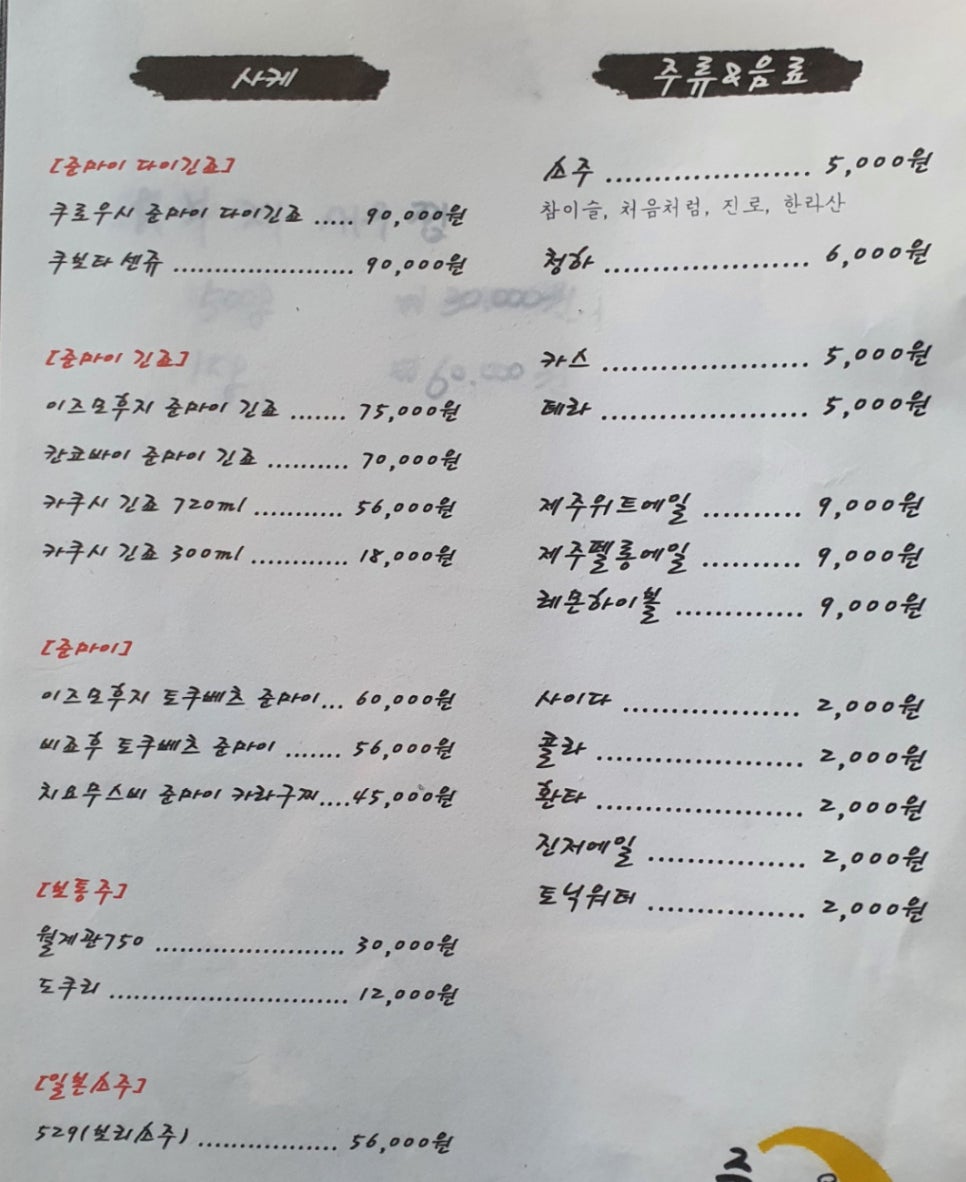 사케
[준마이 다이긴죠]
쿠로우시 준마이 다이긴죠 ..... 90,000원
쿠보타 센쥬 ..................... 90,000원
[준마이 긴죠]
이즈모후지 준마이 긴죠 ....... 75,000원
칸코바이 준마이 긴죠 .......... 70,000원
카쿠시 긴죠 720ml ........... 56,000원
카쿠시 긴죠 300ml ............ 18,000원
[준마이]
이즈모후지 토쿠베츠 준마이... 60,000원
비죠후 토쿠베츠 준마이 ....... 56,000원
치요무스비 준마이 카라구찌....45,000원
[보통주]
월계관750 ...................... 30,000원
도쿠리 ............................ 12,000원
[일본소주]
529(보리소주) ................. 56,000원
주류&음료
소주 ..................... 5,000원
참이슬, 처음처럼, 진로, 한라산
청하 ..................... 6,000원
카스 ..................... 5,000원
테라 ..................... 5,000원
제주위트에일 .......... 9,000원
제주펠롱에일 .......... 9,000원
레몬하이볼 ............. 9,000원
사이다 .................. 2,000원
콜라 ..................... 2,000원
환타 ..................... 2,000원
진저에일 ................ 2,000원
토닉워터 ................ 2,000원